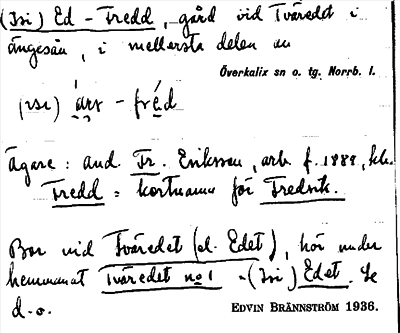 (Isi) Ed - Fredd, gård vid Tväredet i
ängesån, i mellersta delen av
Överkalix sn o. tg. Norrb. l.
(ɪsɪ) - fréd
Ägare: And. Fr. Eriksson, arb. f. 1888,
Fredd = kortnamn för Fredrik.
Bor vid Tväredet (el. Edet), hör under
hemmanet Tväredet no 1 - (Isi) Edet. Se
d.o.
EDVIN BRÄNNSTRÖM 1936.